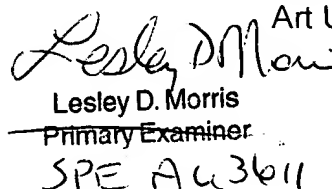 Art U
Lesley D Morris
Lesley D. Morris
Primary Examiner
SPE AU 3611